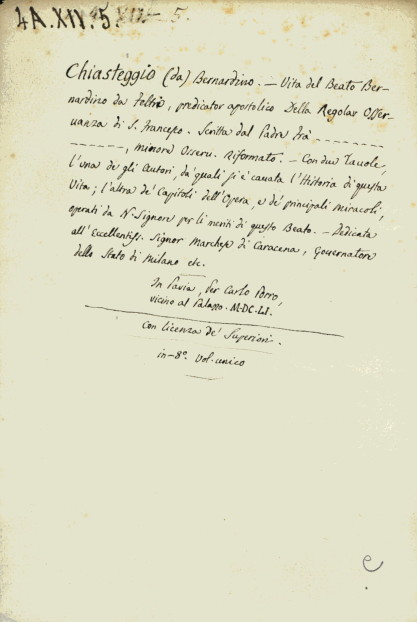 4A.XIV.5.
Chiasteggio (da) Bernardino. — Vita del Beato Ber-
nardino da Feltre, predicator apostolico Della Regolar Osser-
vanza di S. Francesco. Scritta dal Padre Frà - - - - - - -
- - - - - - -, minore Osserv. Riformato. — Con due Tavole,
l'una de gli Autori, da quali si è cavata l'Historia di questa
Vita; l'altra de' Capitoli dell'Opera, e de' principali miracoli,
operati da N. Signore per li meriti di questo Beato. — Dedicata
all'Eccellentiss. Signor Marchese di Caracena, Governatore
dello Stato di Milano etc.
In Pavia, Per Carlo Porro,
vicino al Palazzo. M.DC.LI.
Con licenza de' Superiori.
in-8°. Vol. unico
e